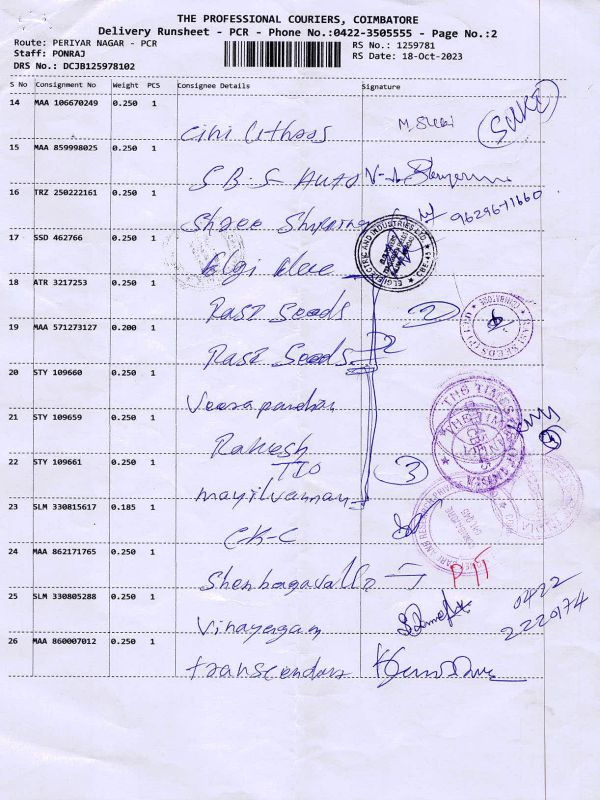 THE PROFESSIONAL COURIERS, COIMBATORE
Delivery Runsheet - PCR - Phone No.:0422-3505555 - Page No.:2
Route: PERIYAR NAGAR - PCR
RS No.: 1259781
Staff: PONRAJ
RS Date: 18-Oct-2023
DRS No.: DCJB125978102
S No Consignment No Weight PCS Consignee Details Signature
14 MAA 106670249 0.250 1
15 MAA 859998025 0.250 1
S.B.S Auto
16 TRZ 250222161 0.250 1
Shree 9629671660
17 SSD 462766 0.250 1
Elgi Elec
18 ATR 3217253 0.250 1
Rasi Seeds 2
19 MAA 571273127 0.200 1
Rasi Seeds
20 STY 109660 0.250 1
Veerapandian
21 STY 109659 0.250 1
Rakesh
TIO
22 STY 109661 0.250 1
Mayilvannan 3
23 SLM 330815617 0.185 1
CK-C
24 MAA 862171765 0.250 1
Shenbagavalli
25 SLM 330805288 0.250 1
Vinayagam 0422
2220174
26 MAA 860007012 0.250 1